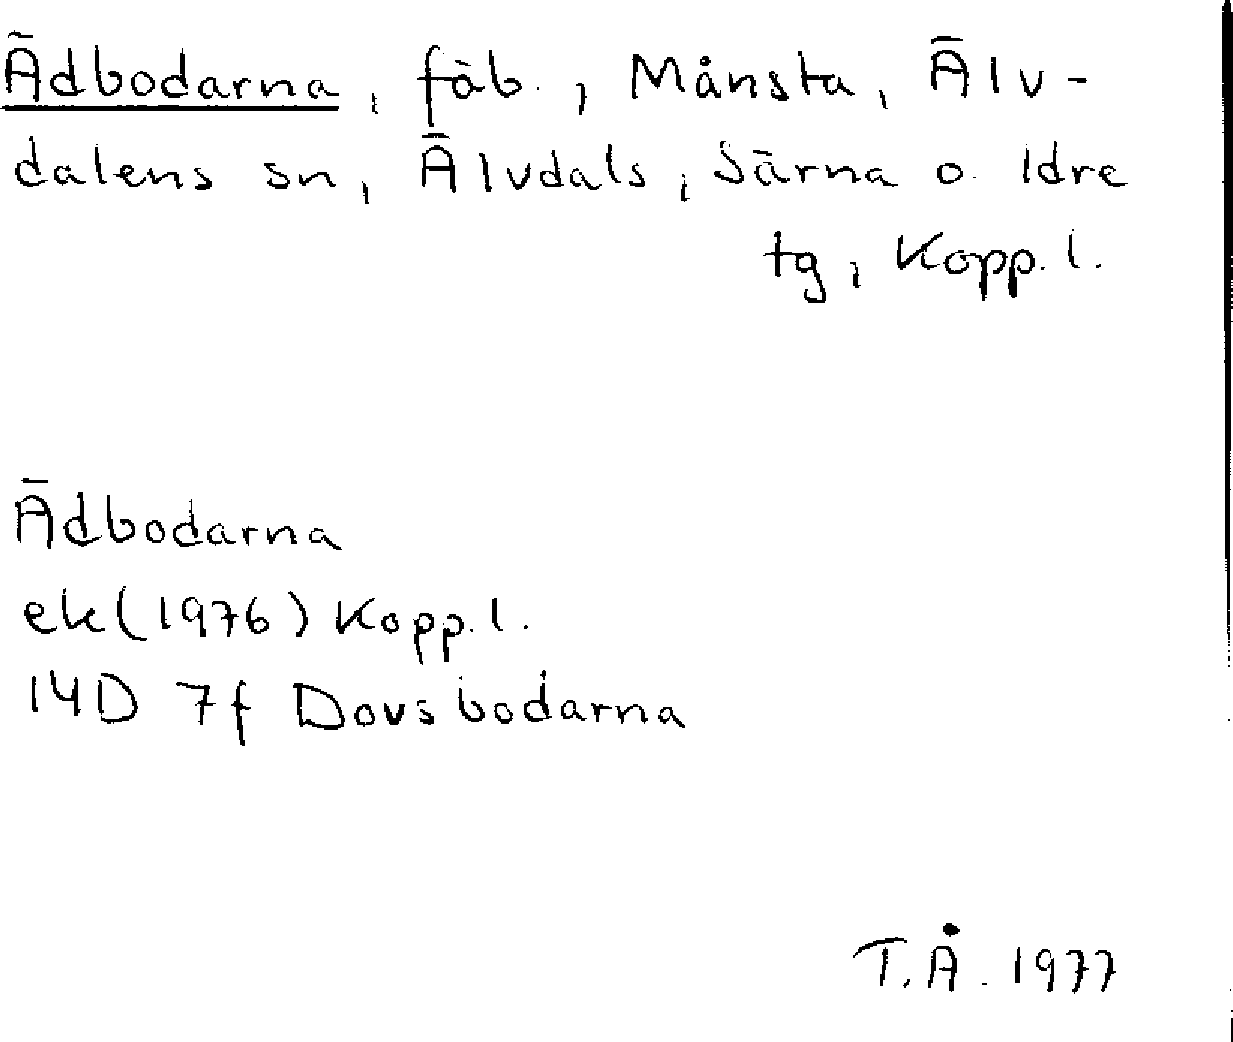 Ädbodarna, fäb., Månsta, Älv-
dalens sn, Älvdals, Särna o. Idre
tg, Kopp. l.
Ädbodarna
ek (1976) Kopp. l.
14D 7f Dovsbodarna
T.Å. 1977